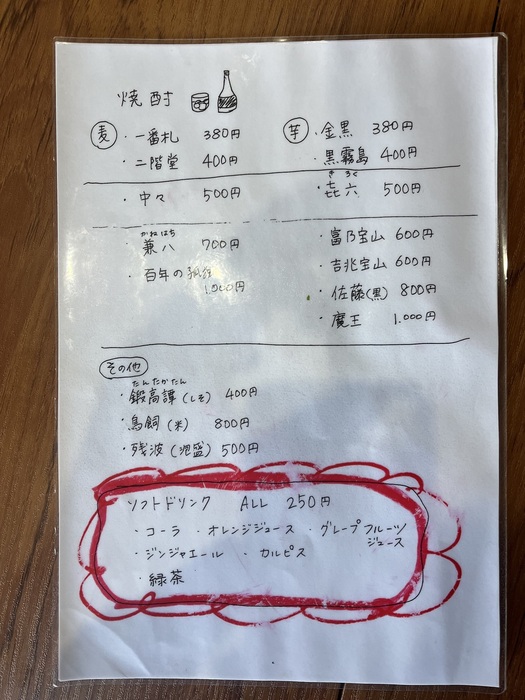 焼酎
麦
・一番札 380円
・二階堂 400円
・中々 500円
かねはち
・兼八 700円
・百年の孤独
1,000円
芋
・金黒 380円
・黒霧島 400円
きろく
・㐂六 500円
・富乃宝山 600円
・吉兆宝山 600円
・佐藤(黒) 800円
・魔王 1.000円
その他
たんたかたん
・鍛高譚(しそ) 400円
・鳥飼(米) 800円
・残波(泡盛) 500円
ソフトドリンク ALL 250円
・コーラ ・オレンジジュース ・グレープフルーツ
ジュース
・ジンジャエール ・カルピス
・緑茶